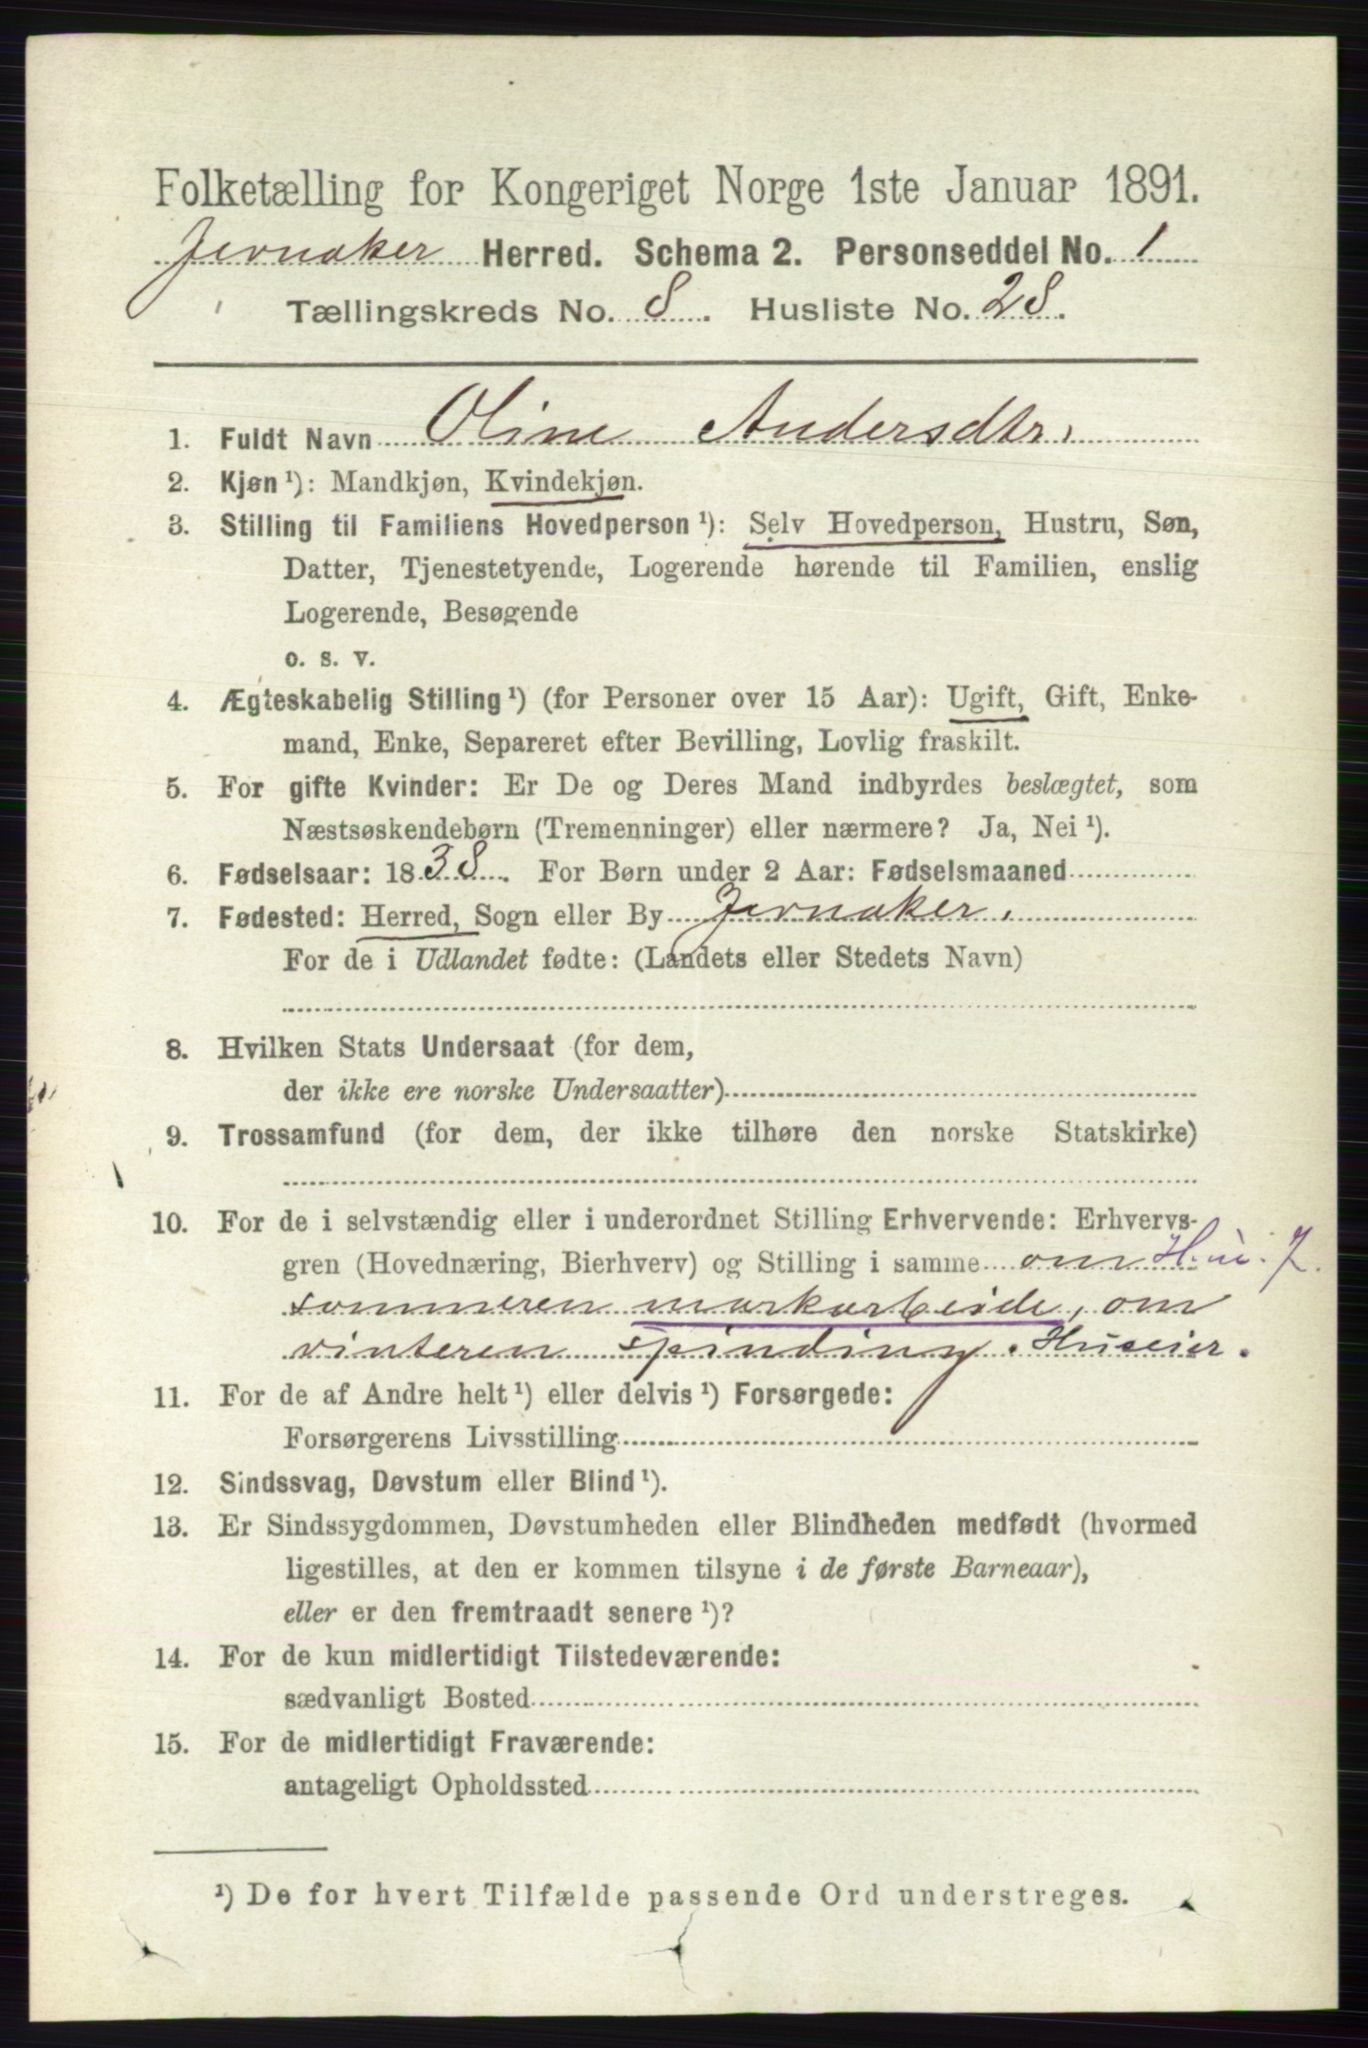 Folketælling for Kongeriget Norge 1ste Januar 1891.
Jevnaker Herred. Schema 2. Personseddel No. 1
Tællingskreds No. 8. Husliste No. 28.
1. Fuldt Navn Oline Andersdtr.
2. Kjøn ¹): Mandkjøn, Kvindekjøn.
3. Stilling til Familiens Hovedperson ¹): Selv Hovedperson, Hustru, Søn,
Datter, Tjenestetyende, Logerende hørende til Familien, enslig
Logerende, Besøgende
o. s. v.
4. Ægteskabelig Stilling ¹) (for Personer over 15 Aar): Ugift, Gift, Enke-
mand, Enke, Separeret efter Bevilling, Lovlig fraskilt.
5. For gifte Kvinder: Er De og Deres Mand indbyrdes beslægtet, som
Næstsøskendebørn (Tremenninger) eller nærmere? Ja, Nei ¹).
6. Fødselsaar: 1838. For Børn under 2 Aar: Fødselsmaaned
7. Fødested: Herred, Sogn eller By Jevnaker.
For de i Udlandet fødte: (Landets eller Stedets Navn)
8. Hvilken Stats Undersaat (for dem,
der ikke ere norske Undersaatter)
9. Trossamfund (for dem, der ikke tilhøre den norske Statskirke)
10. For de i selvstændig eller i underordnet Stilling Erhvervende: Erhvervs-
gren (Hovednæring, Bierhverv) og Stilling i samme om
sommeren markarbeide, om
vinteren spinding. Huseier.
11. For de af Andre helt ¹) eller delvis ¹) Forsørgede:
Forsørgerens Livsstilling
12. Sindssvag, Døvstum eller Blind ¹).
13. Er Sindssygdommen, Døvstumheden eller Blindheden medfødt (hvormed
ligestilles, at den er kommen tilsyne i de første Barneaar),
eller er den fremtraadt senere ¹)?
14. For de kun midlertidigt Tilstedeværende:
sædvanligt Bosted
15. For de midlertidigt Fraværende:
antageligt Opholdssted
¹) De for hvert Tilfælde passende Ord understreges.